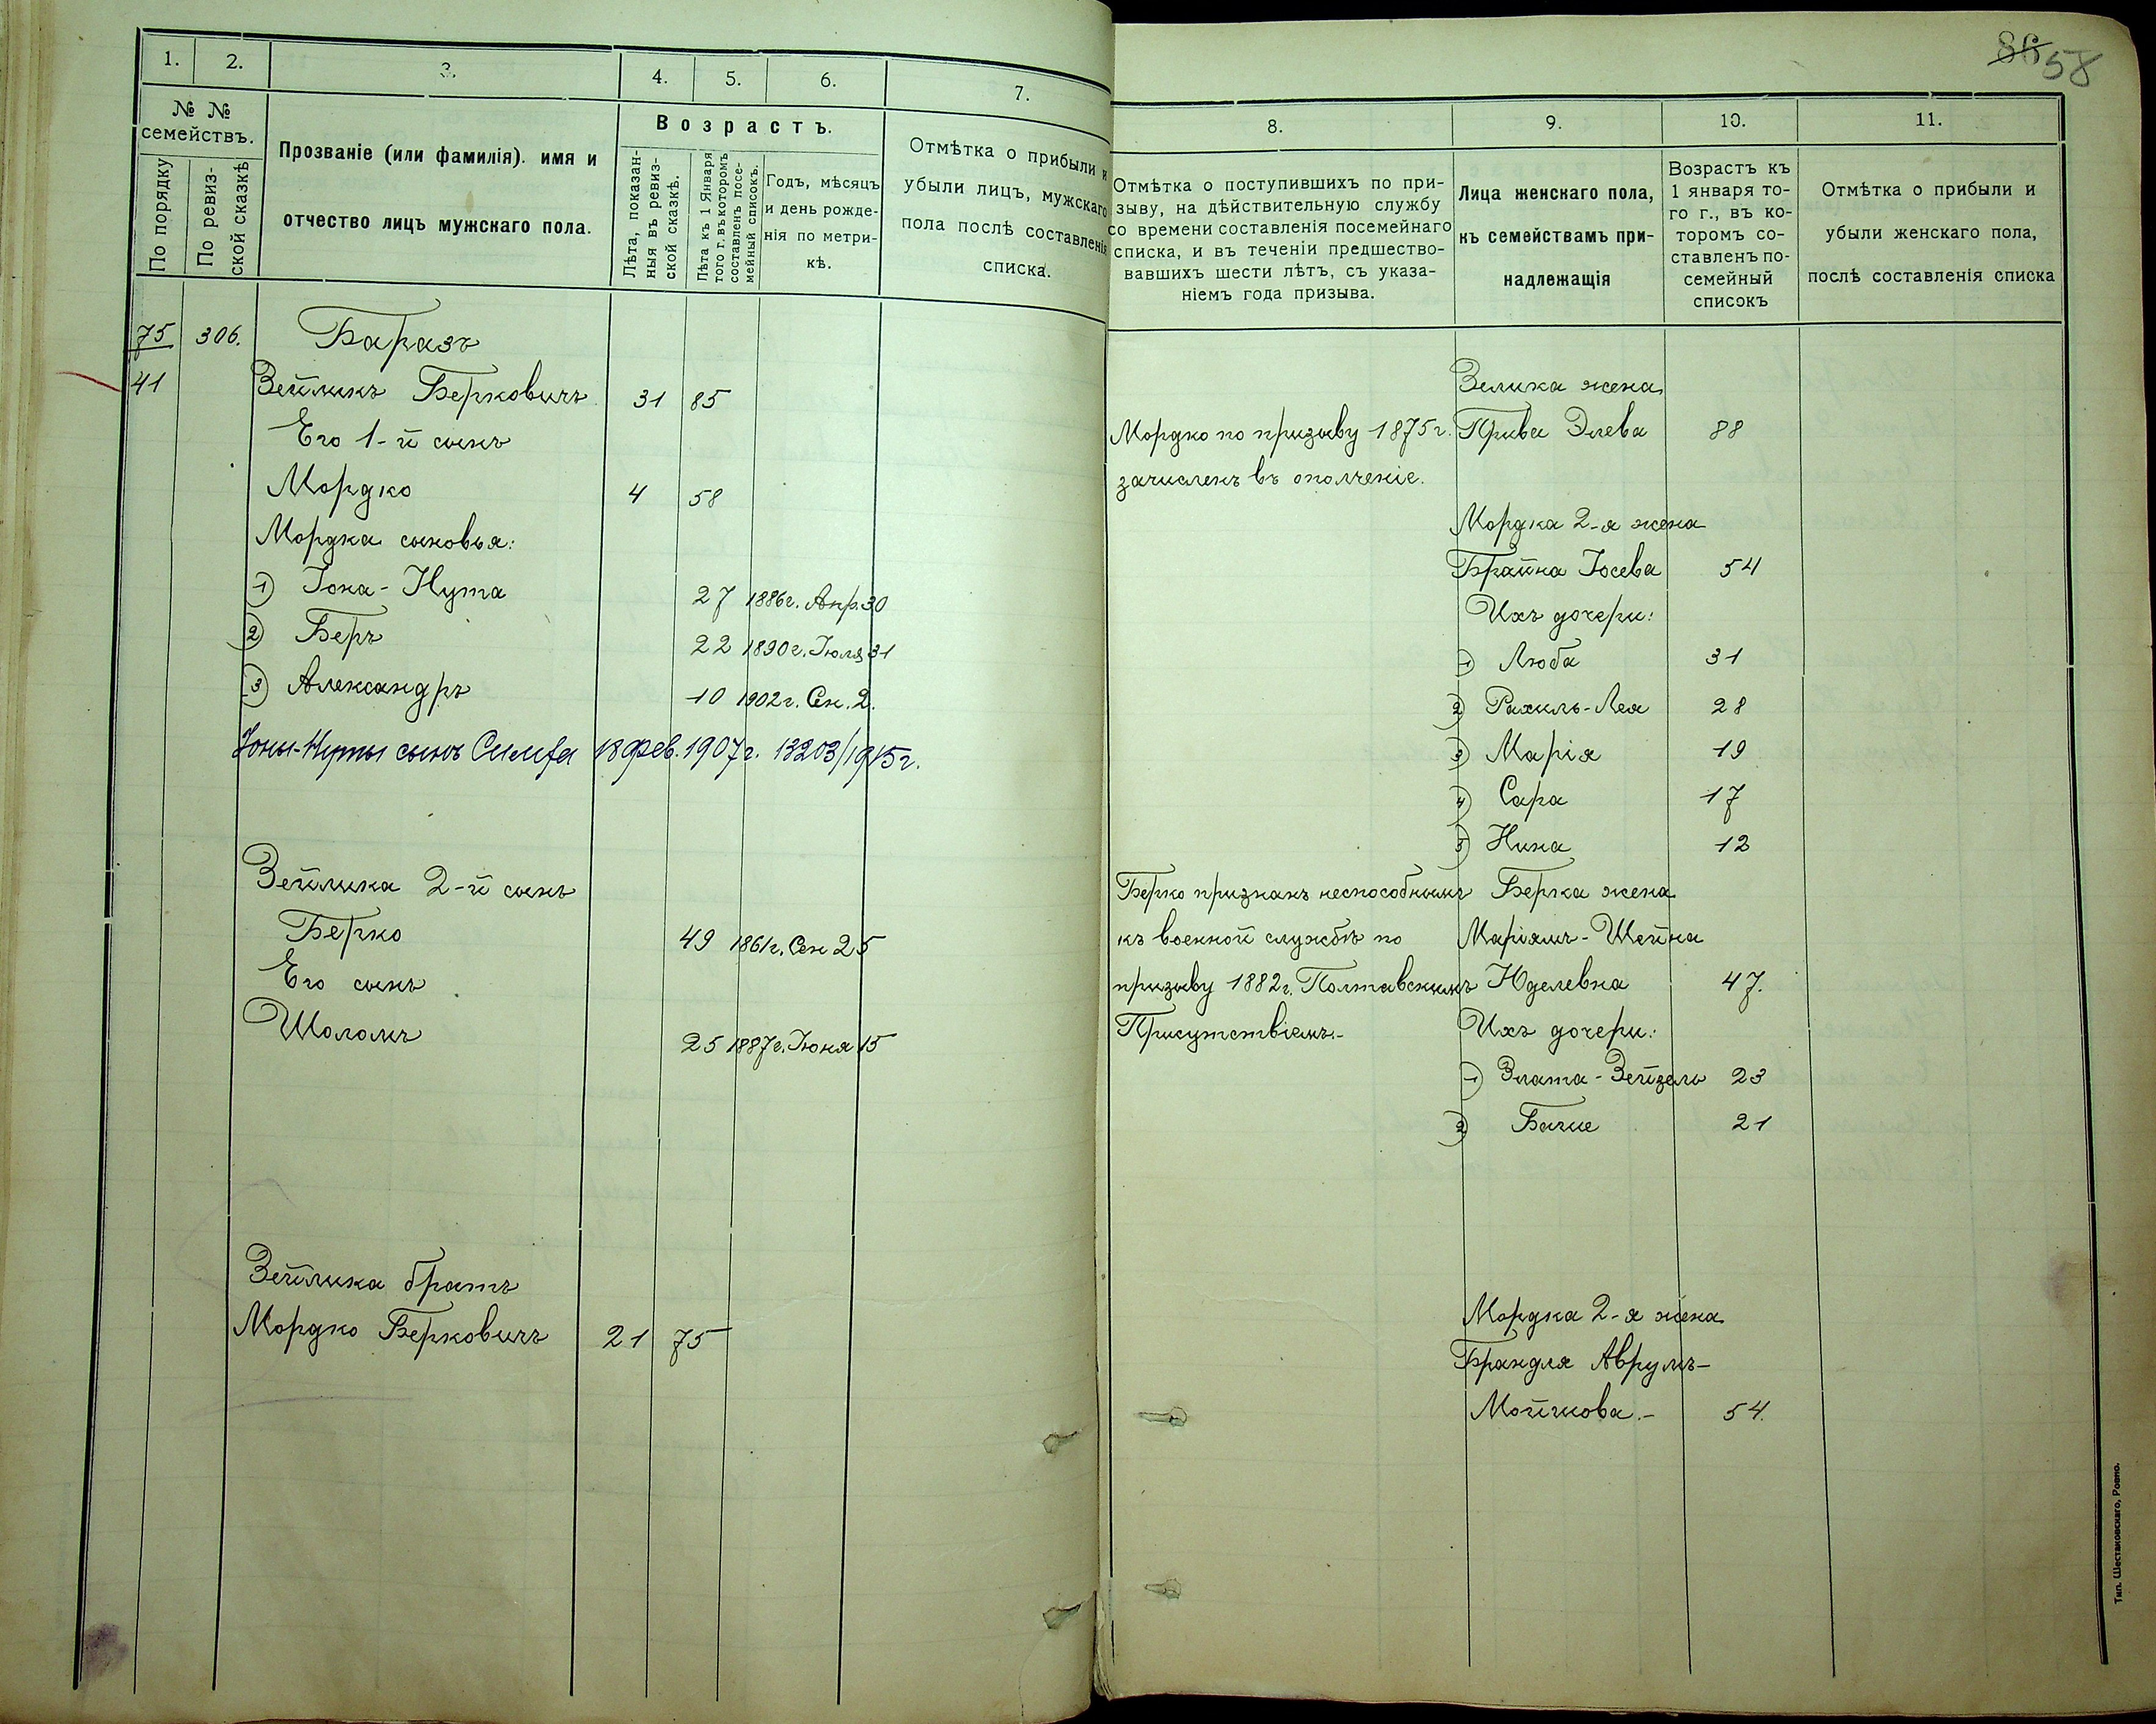 1.
2.
3.
4.
5.
6.
7.
№ №
семействъ.
По порядку
По ревиз-
ской сказкѣ
Прозваніе (или фамилія). имя и
отчество лицъ мужскаго пола.
Возрастъ.
Лѣта, показан-
ныя въ ревиз-
ской сказкѣ.
Лѣта къ 1 Января
того г. въ которомъ
составленъ посе-
мейный списокъ.
Годъ, мѣсяцъ
и день рожде-
нія по метри-
кѣ.
Отмѣтка о прибыли и
убыли лицъ, мужскаго
пола послѣ составленія
списка.
75 306. Баразъ
41 Зейликъ Берковичъ 31 85
Его 1-й сынъ
Мордко 4 58
Мордка сыновья:
1) Іона-Нута 27 1886г. Апр. 30
2) Беръ 22 1890г. Іюля 31
3) Александръ 10 1902г. Сен. 2.
Іоны-Нуты сынъ 18 Фев. 1907г. 13203/1915г.
Зейлика 2-й сынъ
Берко 49 1861г. Сен 25
Его сынъ
Шоломъ 25 1887г. Іюня 15
Зейлика братъ
Мордко Берковичъ 21 75
86 58
8.
9.
10.
11.
Отмѣтка о поступившихъ по при-
зыву, на дѣйствительную службу
со времени составленія посемейнаго
списка, и въ теченіи предшество-
вавшихъ шести лѣтъ, съ указа-
ніемъ года призыва.
Лица женскаго пола,
къ семействамъ при-
надлежащія
Возрастъ къ
1 января то-
го г., въ ко-
торомъ со-
ставленъ по-
семейный
списокъ
Отмѣтка о прибыли и
убыли женскаго пола,
послѣ составленія списка
Зелика жена
Мордко по призыву 1875г. Прива Элева 88
зачисленъ въ ополченіе.
Мордка 2-я жена
Брайна Іосева 54
Ихъ дочери:
1) Люба 31
2) Рахиль-Лея 28
3) Марія 19
4) Сара 17
5) Нина 12
Берко признанъ неспособнымъ Берка жена
къ военной службѣ по Маріямъ-Шейна
призыву 1882г. Полтавскимъ Юделевна 47.
Присутствіемъ.- Ихъ дочери:
1) Злата-Зейзель 23
2) Бачие 21
Мордка 2-я жена
Брандля Аврумъ-
Мойшкова.- 54.
Тип. Шестаковскаго, Ровно.